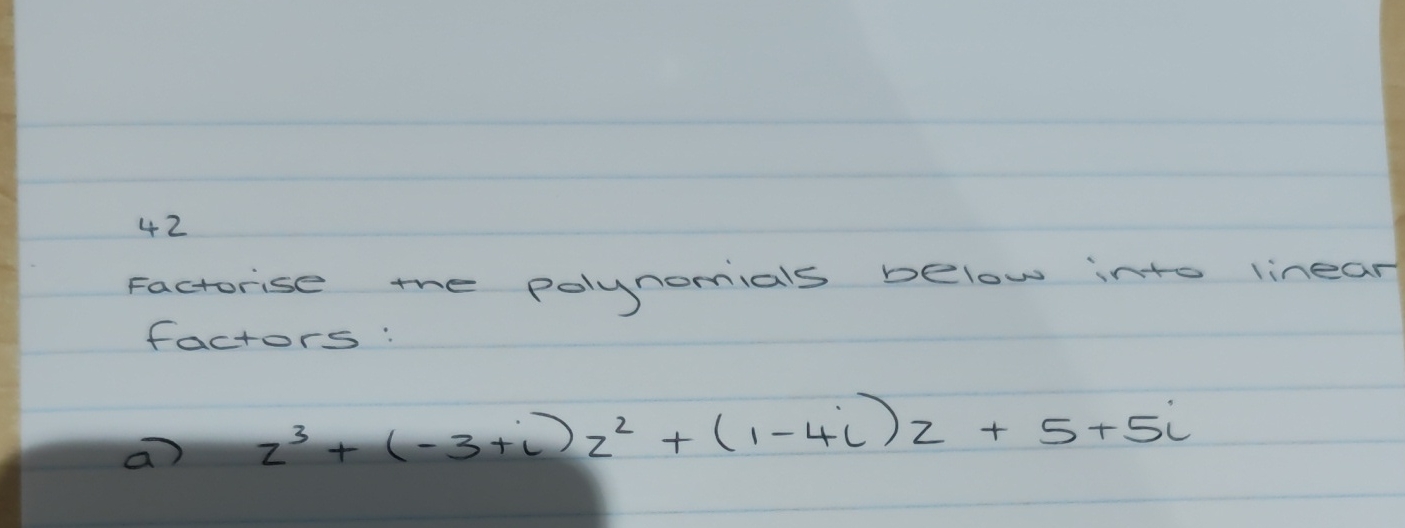 42
Factorise the polynomials below into linear
factors:
a) z³ + (-3+i)z² + (1-4i)z + 5+5i